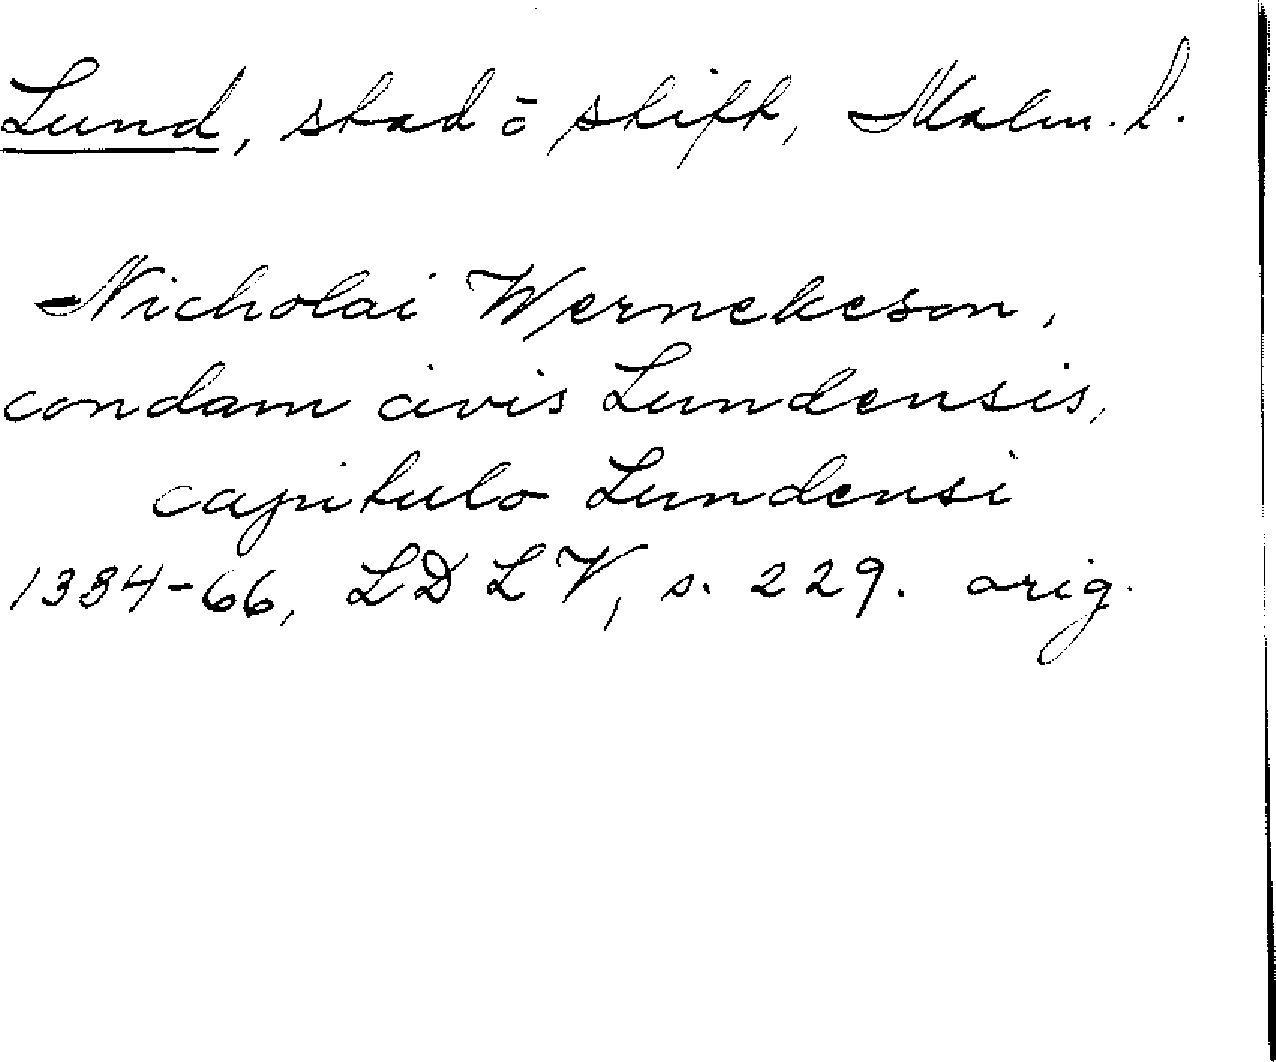 Lund, stad o stift, Malm. l.
Nicholai Wernekeson,
condam civis Lundensis,
capitulo Lundensi
1334-66, LD LV, s. 229. orig.